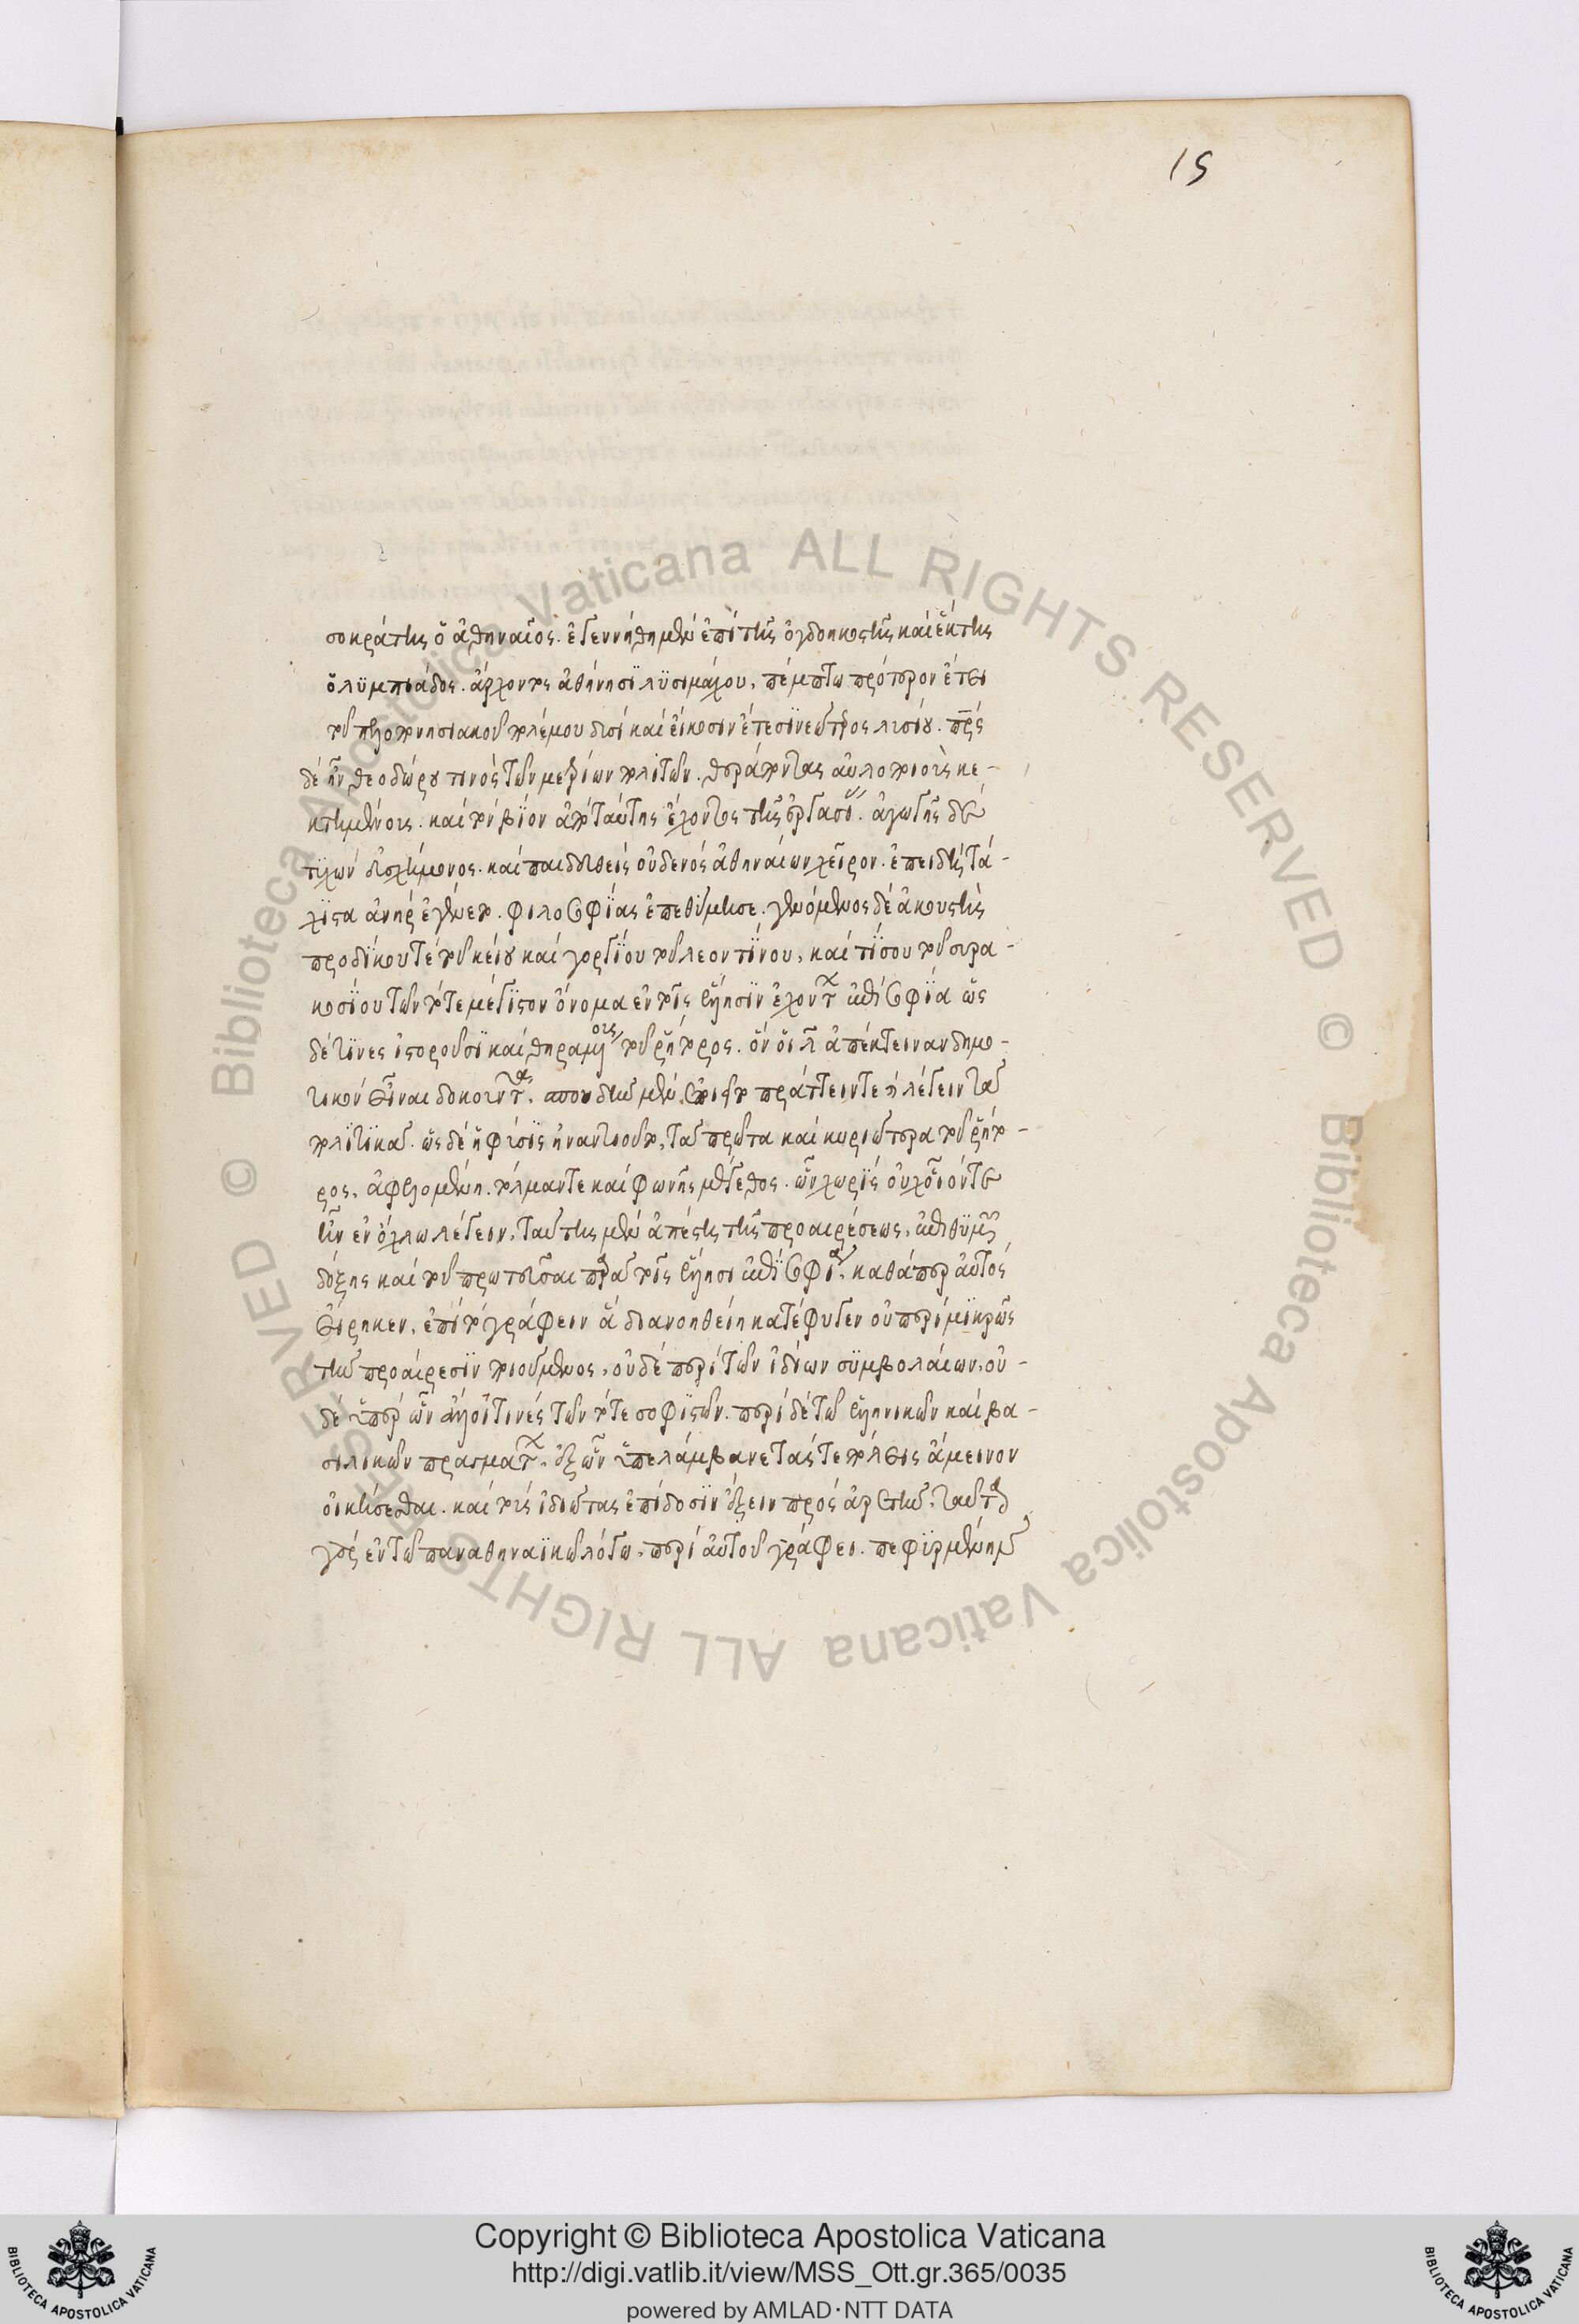 15
σοκράτης ὁ ἀθηναῖος. ἐγεννήθη μὲν ἐπὶ τῆς ὀγδοηκοστῆς καὶ ἕκτης
ὀλϋμπιάδος. ἄρχοντος ἀθήνησϊ λϋσιμάχου, πέμπτω πρότερον ἔτει
τοῦ πελοποννησιακοῦ πολέμου δυσὶ καὶ εἴκοσιν ἔτεσϊ νεώτερος λυσίου. πρς
δὲ ἦν θεοδώρου τινὸς τῶν μετρίων πολιτῶν. θεράποντας αὐλοποιοὺς κε-
κτημένους. καὶ τὸν βίον ἀπὸ ταύτης ἔχοντος τῆς ἐργασίας. ἀγωγῆς δὲ
τϋχὼν εὐσχήμονος. καὶ παιδευθεὶς οὐδενὸς ἀθηναίων χεῖρον. ἐπειδὴ τά-
χϊστα ἀνὴρ ἐγένετο. φιλοσοφϊας ἐπεθύμησε. γενόμενος δὲ ἀκουστὴς
προδϊκου τὲ τοῦ κείου καὶ γοργϊου τοῦ λεοντϊνου, καὶ τϊσου τοῦ συρα-
κοσϊου τῶν τότε μέγϊστον ὄνομα ἐν τοῖς ἕλλησϊν ἐχόντων ἐπὶ σοφϊα ὡς
δέ τϊνες ἱστοροῦσϊ καὶ θηραμένους τοῦ ῥήτορος. ὃν οἱ λ ἀπέκτειναν δημο-
τικὸν εἶναι δοκοῦντα. σπουδὴν μὲν ἐποιεῖτο πράττειν τε ἢ λέγειν τὰ
πολϊτϊκά. ὡς δὲ ἡ φύσϊς ἠναντιοῦτο, τὰ πρῶτα καὶ κυριώτερα τοῦ ῥήτο-
ρος, ἀφελομένη. τόλμαν τε καὶ φωνῆς μέγεθος. ὧν χωρϊς οὐχ οἷόν τε
ἦν ἐν ὄχλω λέγειν, ταύτης μὲν ἀπέστη τῆς προαιρέσεως, ἐπιθϋμῶν
δόξης καὶ τοῦ πρωτεῦσαι παρὰ τοῖς ἕλλησι ἐπὶ σοφϊα, καθάπερ αὐτὸς
εἴρηκεν, ἐπὶ τὸ γράφειν ἃ διανοηθείη κατέφυγεν οὐ περὶ μϊκρῶν
τὴν προαίρεσϊν ποιούμενος, οὐδὲ περὶ τῶν ἰδίων σϋμβολαίων, οὐ-
δὲ ὑπὲρ ὧν ἄλλοι τινὲς τῶν τότε σοφϊστῶν. περὶ δὲ τῶν ἑλληνικῶν καὶ βα-
σιλικῶν πραγμάτων, ἐξ ὧν ὑπελάμβανε τάς τε πόλεις ἄμεινον
οἰκήσεσθαι. καὶ τοὺς ἰδιώτας ἐπίδοσϊν ἕξειν πρὸς ἀρετήν. ταῦτα
γὰρ ἐν τῶ παναθηναϊκῶ λόγω, περὶ αὐτοῦ γράφει. πεφϋρμένην
Copyright © Biblioteca Apostolica Vaticana
http://digi.vatlib.it/view/MSS_Ott.gr.365/0035
powered by AMLAD·NTT DATA